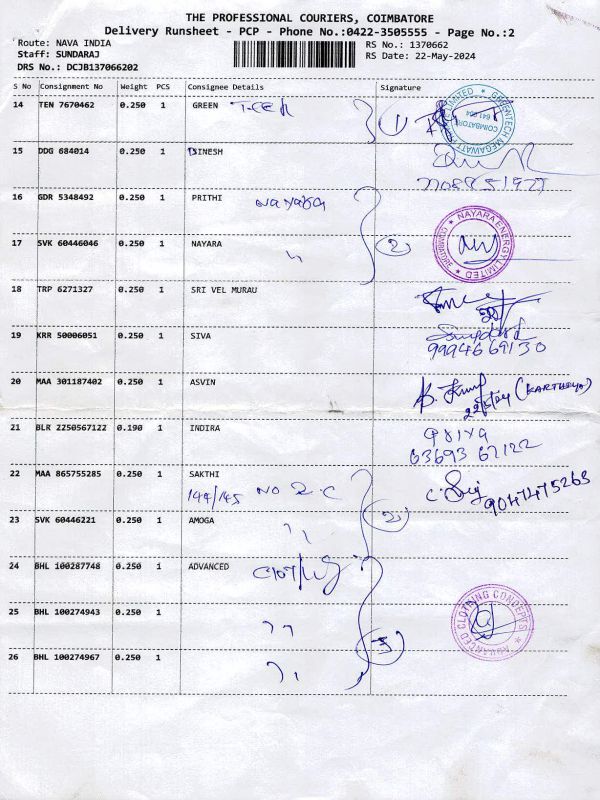 THE PROFESSIONAL COURIERS, COIMBATORE
Delivery Runsheet - PCP - Phone No.:0422-3505555 - Page No.:2
Route: NAVA INDIA RS No.: 1370662
Staff: SUNDARAJ RS Date: 22-May-2024
DRS No.: DCJB137066202
S No Consignment No Weight PCS Consignee Details Signature
14 TEN 7670462 0.250 1 GREEN 1
GREENTECH MEGAWATT LIMITED COIMBATORE 641 004
15 DDG 684014 0.250 1 DINESH
16 GDR 5348492 0.250 1 PRITHI Nayara
17 SVK 60446046 0.250 1 NAYARA 〃 2
NAYARA ENERGY LIMITED
18 TRP 6271327 0.250 1 SRI VEL MURAU
19 KRR 50006051 0.250 1 SIVA
9994669130
20 MAA 301187402 0.250 1 ASVIN
22/5/24 (KARTHIYA)
21 BLR 2250567122 0.190 1 INDIRA Priya
63693 67122
22 MAA 865755285 0.250 1 SAKTHI
144/145 NO D.C 9047475263
23 SVK 60446221 0.250 1 AMOGA 〃 2
24 BHL 100287748 0.250 1 ADVANCED
25 BHL 100274943 0.250 1 〃
ADVANCED CLOTHING CONCEPTS
26 BHL 100274967 0.250 1 〃 3